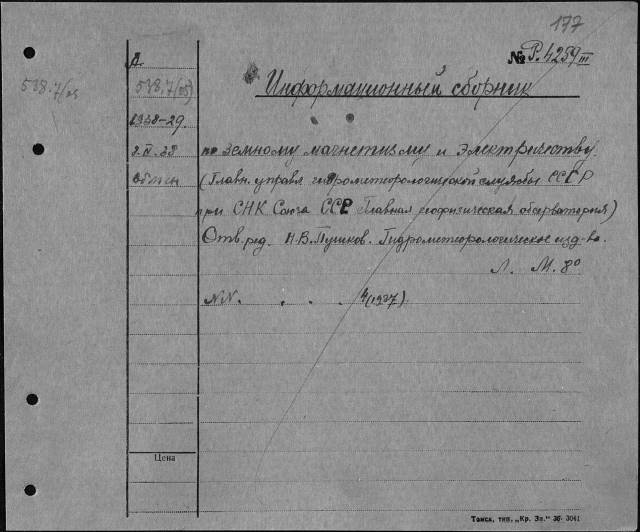 177
№ Р.4259 III
Д.
538.7/05
538.7(05)
Информационный сборник
1938-29.
2.IV.38
по земному магнетизму и электричеству.
Обмен
(Главн. управл гидрометеорологической службы СССР
при СНК Союза ССР Главная геофизическая обсерватория)
Отв. ред. Н.В. Пушков. Гидрометеорологическое изд-во.
Л. М. 8°
NN. . . . 4(1937).
Цена
Томск, тип. „Кр. Зн." 36- 3041